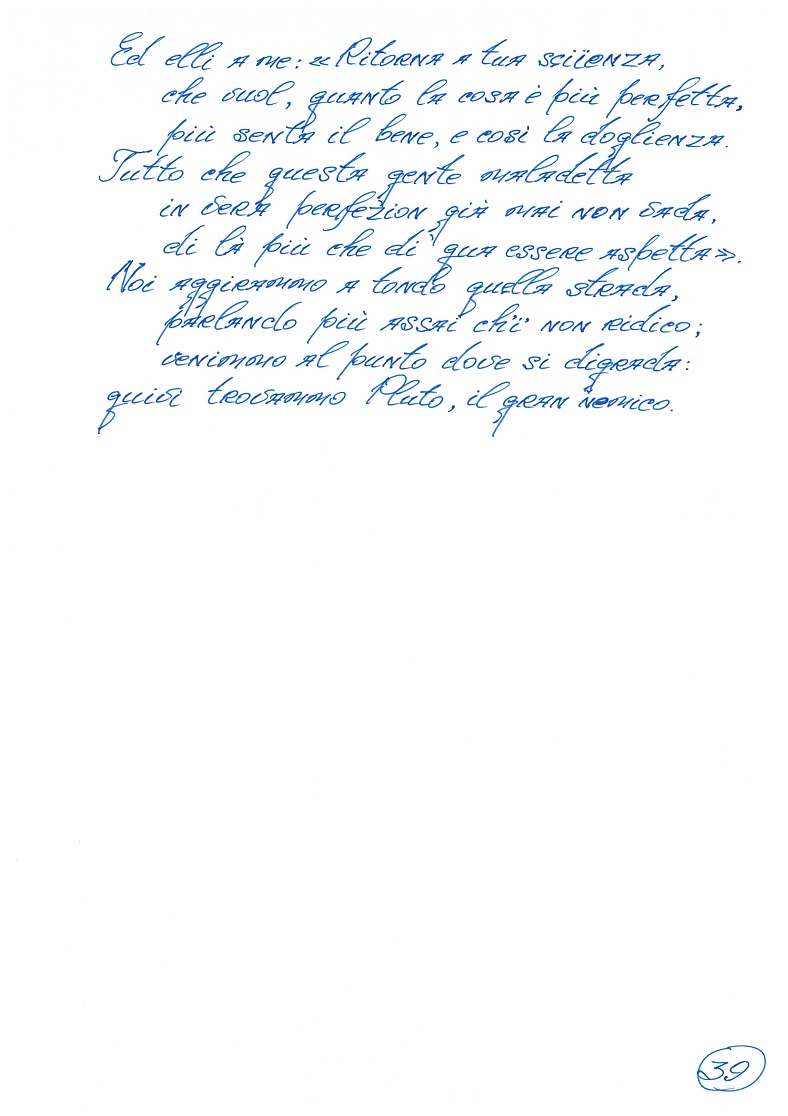 Ed elli a me: « Ritorna a tua scïenza,
che vuol, quanto la cosa è più perfetta,
più senta il bene, e così la doglienza.
Tutto che questa gente maladetta
in vera perfezion già mai non vada,
di là più che di qua essere aspetta».
Noi aggirammo a tondo quella strada,
parlando più assai ch'i' non ridico;
venimmo al punto dove si digrada:
quivi trovammo Pluto, il gran nemico.
39